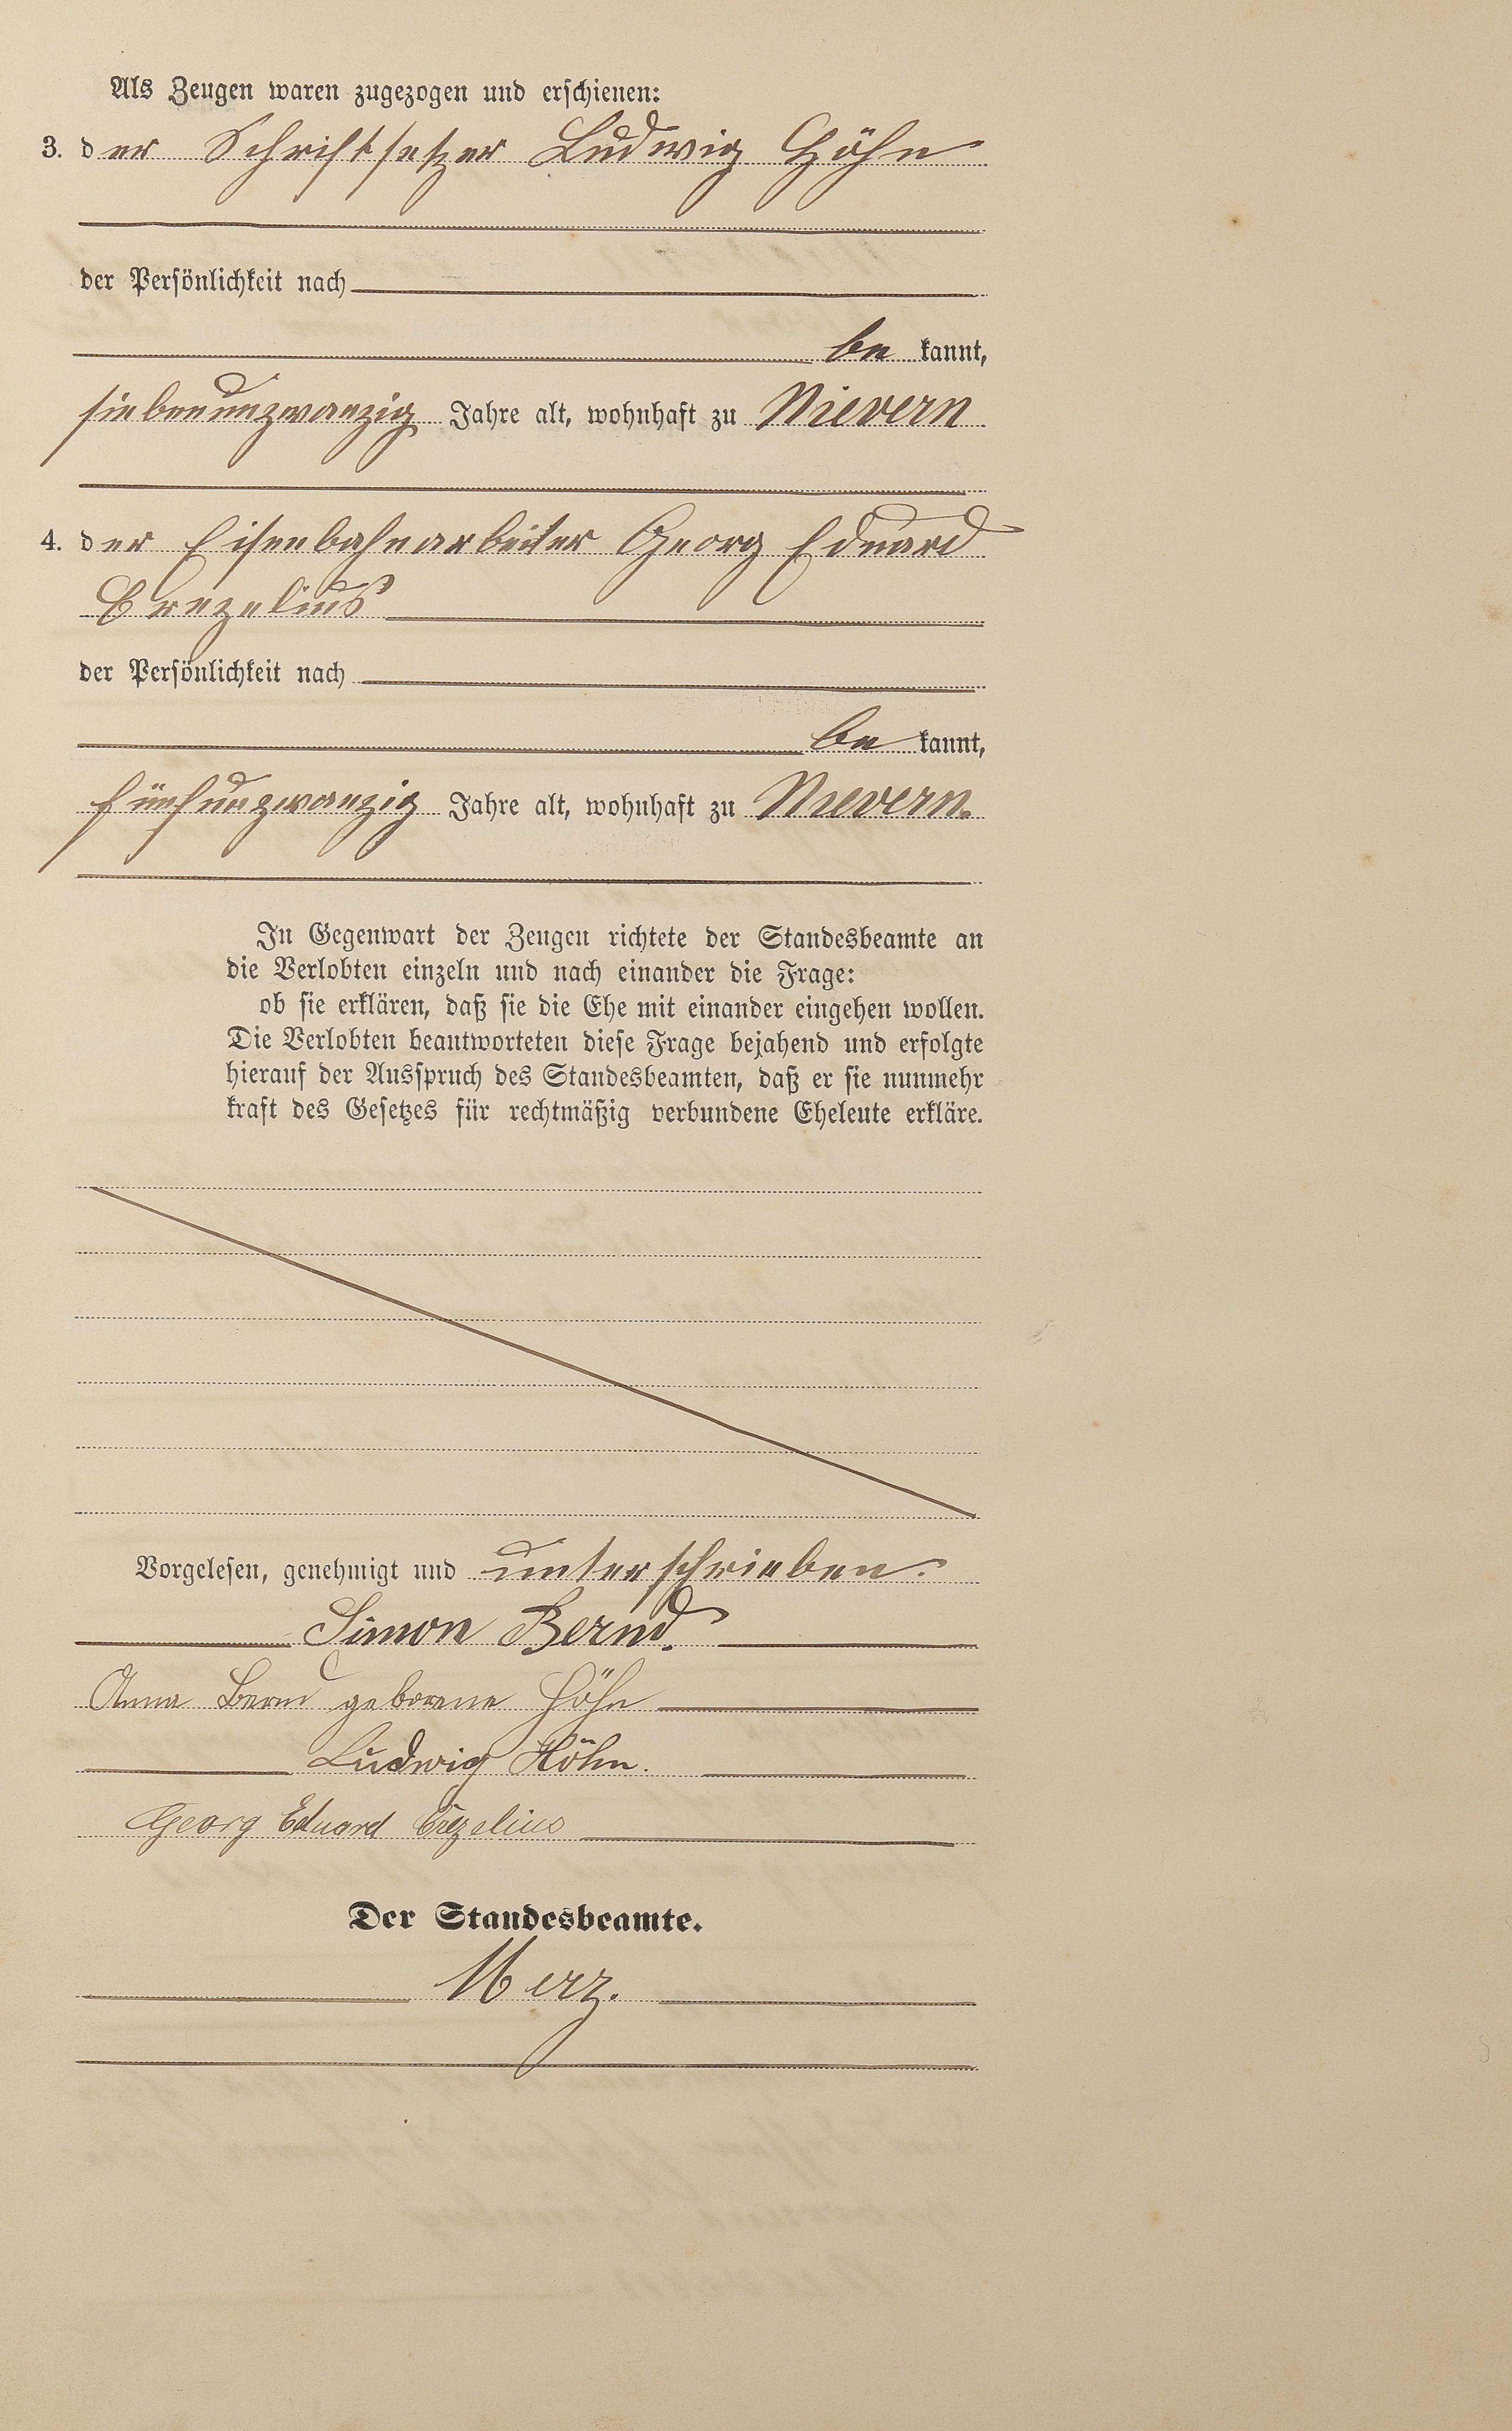 Als Zeugen waren zugezogen und erschienen:
3. der Schriftsetzer Ludwig Höhn
der Persönlichkeit nach
be kannt,
siebenunzwanzig Jahre alt, wohnhaft zu Nievern
4. der Eisenbahnarbeiter Georg Eduard
Crezelius
der Persönlichkeit nach
be kannt,
fünfunzwanzig Jahre alt, wohnhaft zu Nievern.
In Gegenwart der Zeugen richtete der Standesbeamte an
die Verlobten einzeln und nach einander die Frage:
ob sie erklären, daß sie die Ehe mit einander eingehen wollen.
Die Verlobten beantworteten diese Frage bejahend und erfolgte
hierauf der Ausspruch des Standesbeamten, daß er sie nunmehr
kraft des Gesetzes für rechtmäßig verbundene Eheleute erkläre.
Vorgelesen, genehmigt und unterschrieben.
Simon Bernd.
Anna Bernd geborene Höhn
Ludwig Höhn.
Georg Eduard Crezelius
Der Standesbeamte.
Merz.